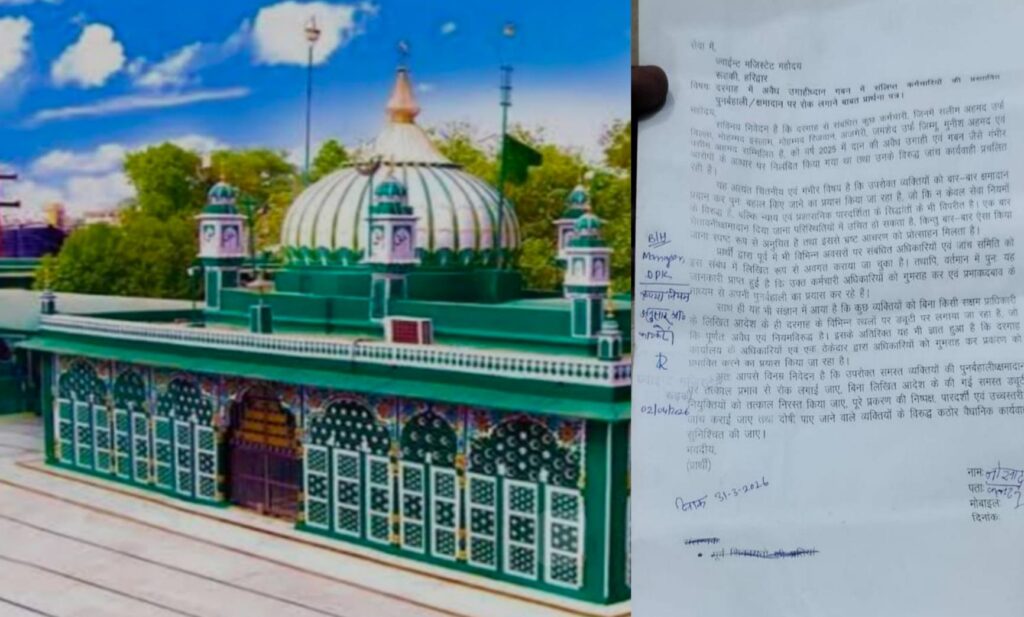 सेवा में,
ज्वाईन्ट मजिस्टेट महोदय
रूड़की, हरिद्वार
विषय: दरगाह में अवैध उगाही/दान गबन में संलिप्त कर्मचारियों की प्रस्तावित
पुनर्बहाली/क्षमादान पर रोक लगाने बाबत प्रार्थना पत्र।
महोदय,
सविनय निवेदन है कि दरगाह से संबंधित कुछ कर्मचारी, जिनमें सलीम अहमद उर्फ
मोहम्मद इस्लाम, मोहम्मद रिजवान, अजमेरी, जमशेद उर्फ जिम्मू, मुनीश अहमद एवं
अहमद सम्मिलित हैं, को वर्ष 2025 में दान की अवैध उगाही एवं गबन जैसे गंभीर
आरोपों के आधार पर निलंबित किया गया था तथा उनके विरुद्ध जांच कार्यवाही प्रचलित
रही है।
यह अत्यंत चिंतनीय एवं गंभीर विषय है कि उपरोक्त व्यक्तियों को बार-बार क्षमादान
कर पुनः बहाल किए जाने का प्रयास किया जा रहा है, जो कि न केवल सेवा नियमों
के विरुद्ध है, बल्कि न्याय एवं प्रशासनिक पारदर्शिता के सिद्धांतों के भी विपरीत है। एक बार
दिया जाना परिस्थितियों में उचित हो सकता है, किन्तु बार-बार ऐसा किया
जाना स्पष्ट रूप से अनुचित है तथा इससे भ्रष्ट आचरण को प्रोत्साहन मिलता है।
प्रार्थी द्वारा पूर्व में भी विभिन्न अवसरों पर संबंधित अधिकारियों एवं जांच समिति को
इस संबंध में लिखित रूप से अवगत कराया जा चुका है। तथापि, वर्तमान में पुनः यह
जानकारी प्राप्त हुई है कि उक्त कर्मचारी अधिकारियों को गुमराह कर एवं प्रभाव/दबाव के
माध्यम से अपनी पुनर्बहाली का प्रयास कर रहे हैं।
साथ ही यह भी संज्ञान में आया है कि कुछ व्यक्तियों को बिना किसी सक्षम प्राधिकारी
के लिखित आदेश के ही दरगाह के विभिन्न स्थलों पर ड्यूटी पर लगाया जा रहा है, जो
कि पूर्णतः अवैध एवं नियमविरुद्ध है। इसके अतिरिक्त यह भी ज्ञात हुआ है कि दरगाह
कार्यालय के अधिकारियों एवं एक ठेकेदार द्वारा अधिकारियों को गुमराह कर प्रकरण को
प्रभावित करने का प्रयास किया जा रहा है।
अतः आपसे विनम्र निवेदन है कि उपरोक्त समस्त व्यक्तियों की पुनर्बहाली/क्षमादान
पर तत्काल प्रभाव से रोक लगाई जाए, बिना लिखित आदेश के की गई समस्त
नियुक्तियों को तत्काल निरस्त किया जाए, पूरे प्रकरण की निष्पक्ष, पारदर्शी एवं उच्चस्तरीय
जांच कराई जाए तथा दोषी पाए जाने वाले व्यक्तियों के विरुद्ध कठोर वैधानिक
सुनिश्चित की जाए।
भवदीय,
(प्रार्थी)
DPK
02/04/2026
दिनांक 31-3-2026
नाम:
पता:
मोबाइल:
दिनांक: